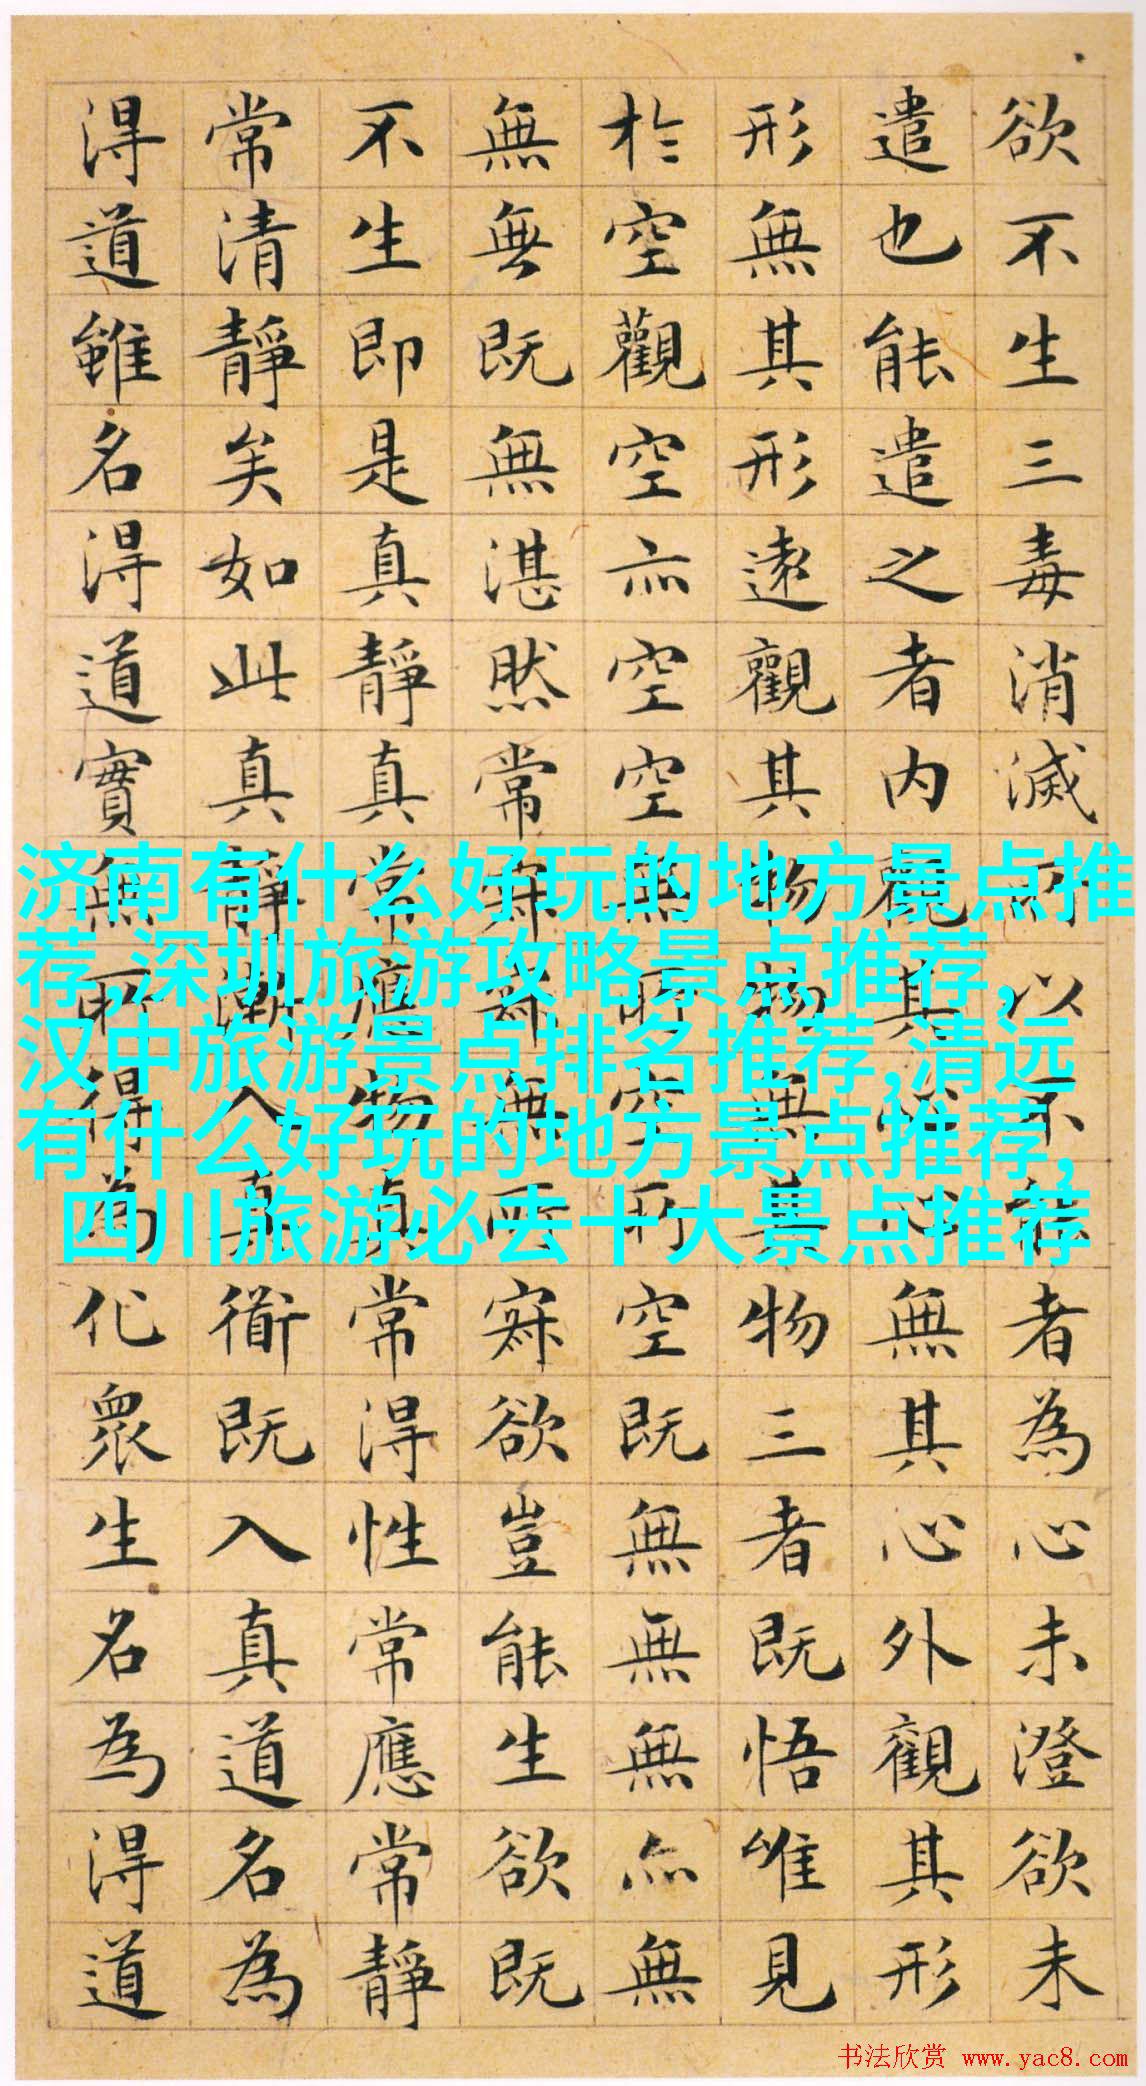 欲不生三毒消滅所以不能者為心未澄欲未
遣也能遣之者内觀其心心無其心外觀其形
形無其形遠觀其物物無其物三者既悟唯見
於空觀空亦空空無所空所空既無無無亦無
無無既無湛然常寂寂無所寂欲豈能生欲既
不生即是真靜真常應物真常得性常應常靜
常清靜矣如此真靜漸入真衜既入真道名為
得道雖名得道實無所得為化眾生名為得道
济南有什么好玩的地方景点推
荐,深圳旅游攻略景点推荐,
汉中旅游景点排名推荐,清远
有什么好玩的地方景点推荐,
四川旅游必去十大景点推荐
书法欣赏 www.yac8.com